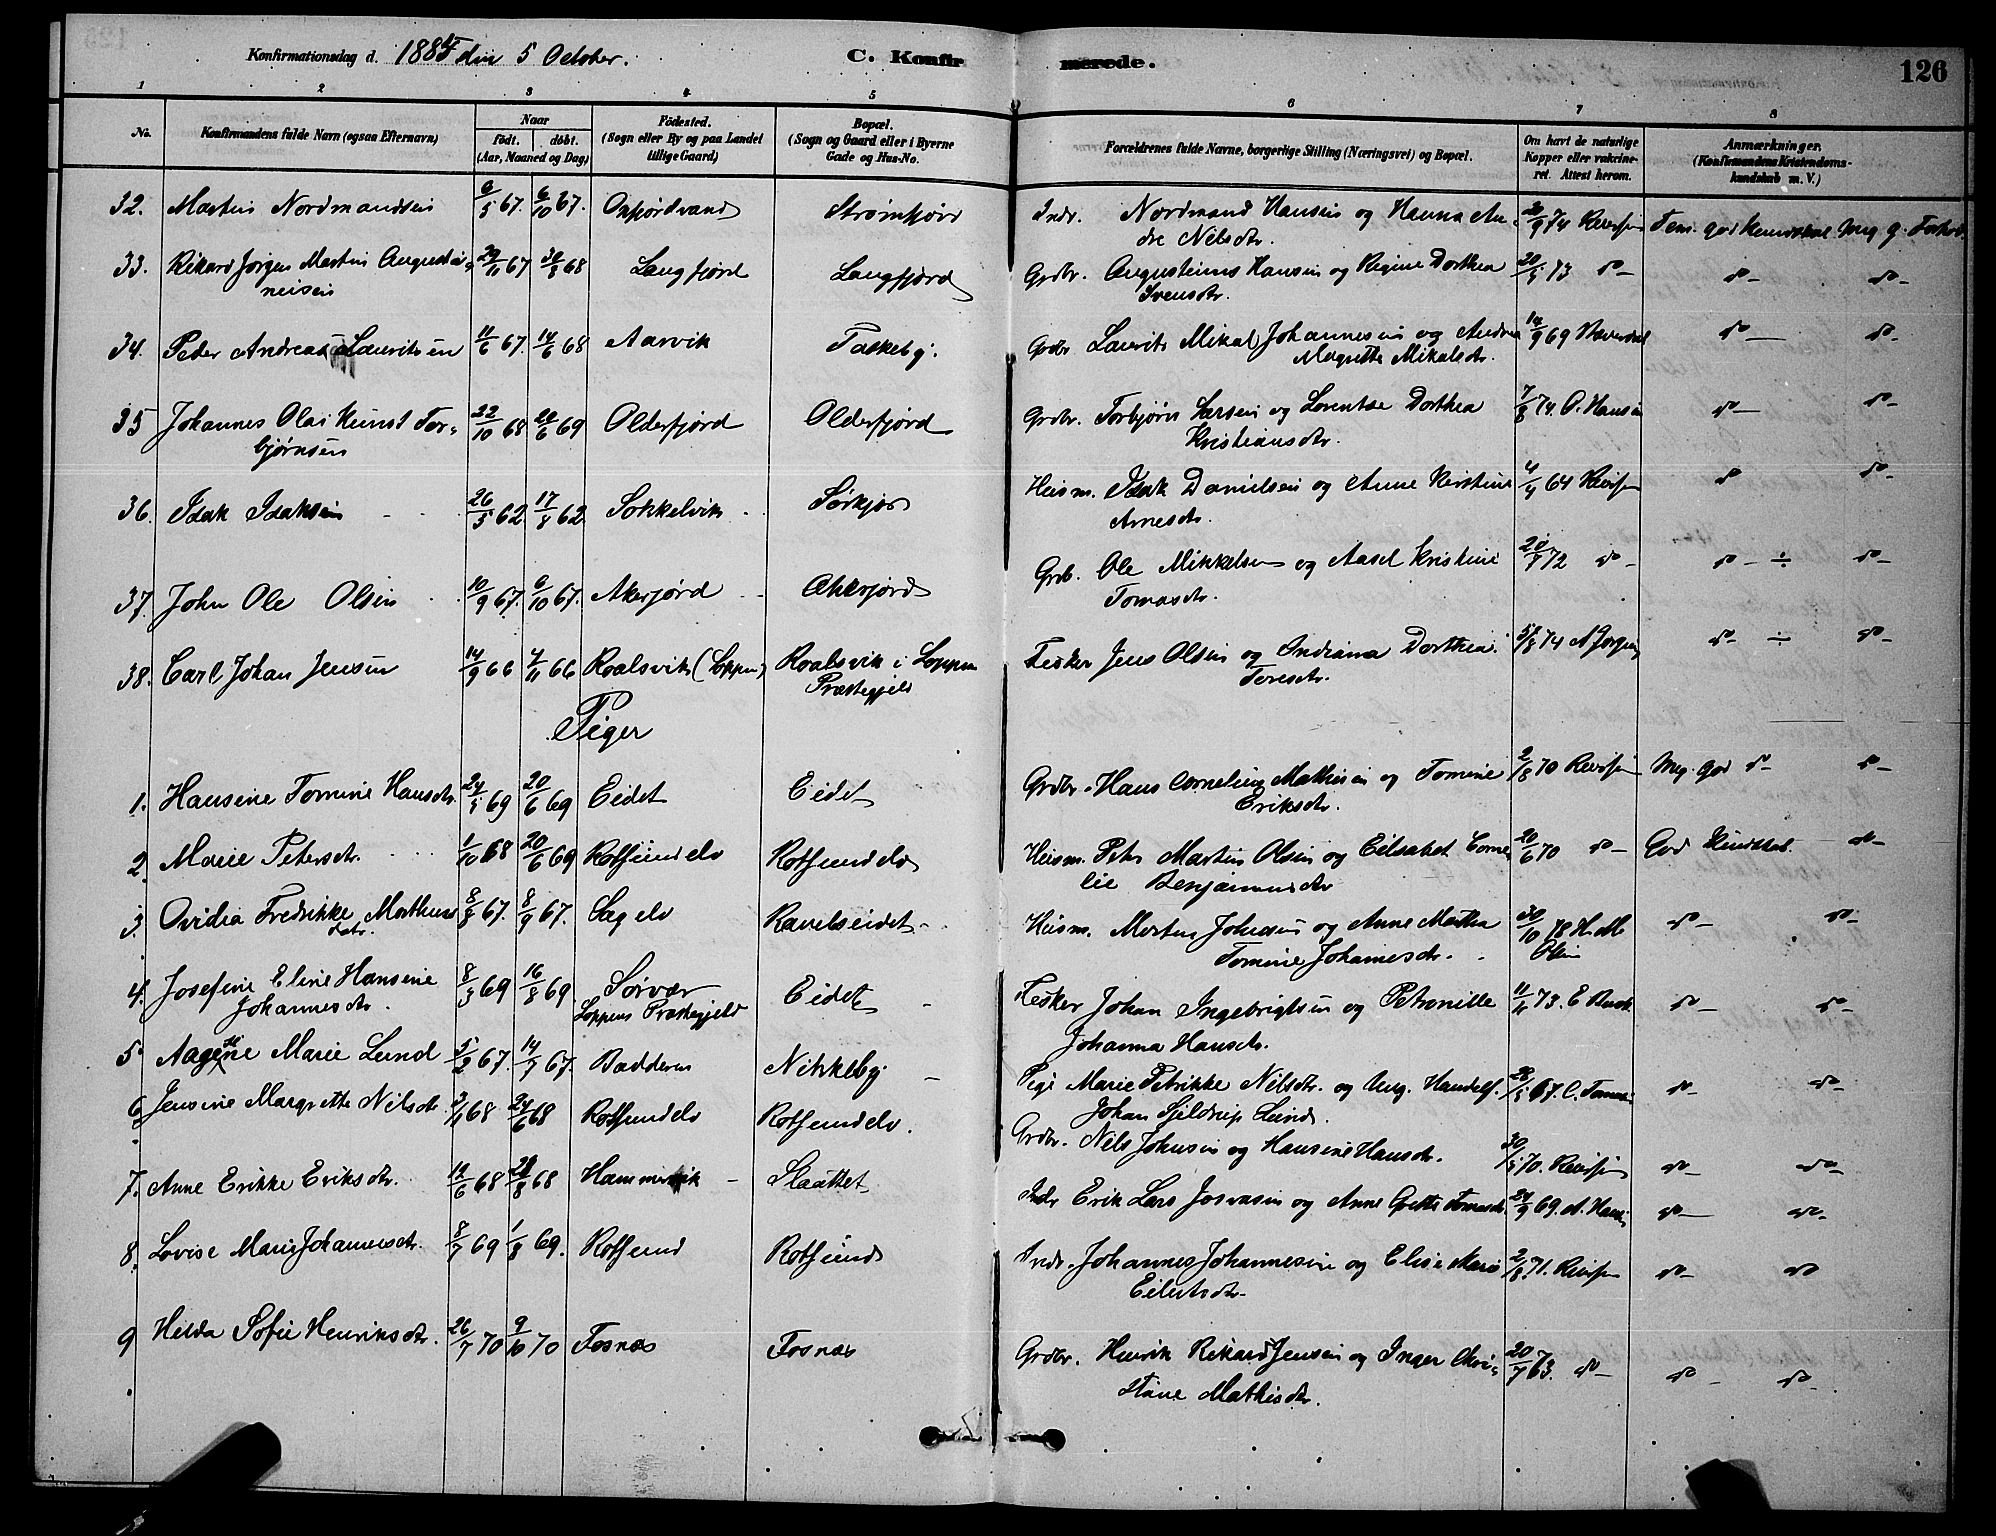 Konfirmationsdag d. 1884 den 5 October. C. Konfirmerede. 126
1 2 3 4 5 6 7 8
No. Konfirmandens fulde Navn (ogsaa Efternavn) Naar født. døbt. (Aar, Maaned og Dag) Fødested. (Sogn eller By og paa Landet tillige Gaard) Bopæl. (Sogn og Gaard eller i Byerne Gade og Hus-No. Forældrenes fulde Navne, borgerlige Stilling (Næringsvei) og Bopæl. Om havt de naturlige Kopper eller vakcineret. Attest herom. Anmærkninger. (Konfirmandens Kristendomskundskab m. V.)
32. Martin Nordmandsen 6/5 67. 6/10 67. Oxfjordvand Strømfjord Indr. Nordmand Hansen og Hanna An-
dre Nilsdtr. 9 74 Revisjen Tem. god Kundskab Meg. g. Forh.
33. Rikard Jørgen Martin Augusti- 29/11 67 30/8 68 Langfjord Langfjord Grdbr. Augustinus Hansen og Regine Dorthea 20/5 73 do - do - do -
neisen Svensdtr.
34. Peder Andreas Lauritsen 11/6 67. 14/6 68 Aarvik Taskeby. Grdbr Laurits Mikal Johannesen og Andrea 14/9 69 do - do -
Magrette Mikalsdtr.
35 Johannes Olai Kunst Tor- 22/10 68 20/6 69 Olderfjord Olderfjord Grdbr. Torbjørn Larsen og Lorentse Dorthea 7/8 74. O. Hansen do - do -
bjørnsen Kristiansdtr.
36. Isak Isaksen 26/5 62 17/8 62 Sokkelvik Sørkjos Husm. Isak Danielsen og Anne Kirstine 4/4 64 Revisjen do do -
Arnesdtr.
37. John Ole Olsen 10/9 67. 6/10 67. Akerfjord Akkerfjord Grdb. Ole Mikkelsen og Aasel Kristine 20/7 72 do - do - ÷ do -
Tomasdtr.
38. Carl Johan Jensen 14/9 66 4/11 66 Roalsvik (Loppen) Roalsvik i Loppen Fisker Jens Olsen og Indiana Dorthea 5/8 74 A Jørgen do - ÷ do -
Præstegjeld Toresdtr.
Piger
1. Hansine Tomine Hansdtr. 24/5 69 20/6 69 Eidet Eidet Grdbr. Hans Cornelius Mathisen og Tomine 2/8 70 Revisjen Meg. god do - do -
Eriksdtr.
2. Marie Petersdtr. 1/10 68 20/6 69 Rotsundelv Rotsundelv Husm. Peter Martin Olsen og Eilsabet Corne- 20/6 70 do - God Kundskab. do -
lie Benjaminsdtr
3. Ovidia Fredrikke Morthens 8/8 67. 8/9 67. Sagelv Ravelseidet - Husm. Morten Johnsen og Anne Martha 30/10 78 H. M do - do -
datr. Tomine Johannesdtr. Olsen
4. Josefine Eline Hansine 8/3 69 16/8 69 Sørvær Eidet - Fisker Johan Ingebrigtsen og Petronille 11/11 73. E do - do -
Johannesdtr. Loppens Præstegjeld Johanna Hansdtr.
5. Aagene Marie Lund 5/2 67. 14/7 67. Badderen Nikkeby - Pige Marie Petrikke Nilsdtr. og Ung. Handelsf. 28/5 67. C. do - do -
Johan Sjeldrup Lund.
6. Jensine Margrette Nilsdtr. 3/1 68 24/6 68 Rotsundelv Rotsundelv. Grdbr. Nils Johnsen og Hansine Hansdtr. 30/5 70. Revisjen do - do -
7. Anne Erikke Eriksdtr. 14/6 68 23/8 68 Hammervik - Slaattet Indr Erik Lars Josvasen og Anne Grette Tomasdtr. 24/9 69. A. Hansen do - do -
8. Lovise Marie Johannesdtr. 8/7 69 1/8 69. Rotsund Rotsund Indr. Johannes Johannesen og Elise Marie 2/8 71. Revisjen do - do
Eilertsdtr.
9 Hilda Sofie Henriksdtr. 26/7 70 9/10 70 Fosnæs Fosnæs Grdbr. Henrik Rikard Jensen og Inger Chri- 20/7 63. do - do - do -
stine Mathisdtr.